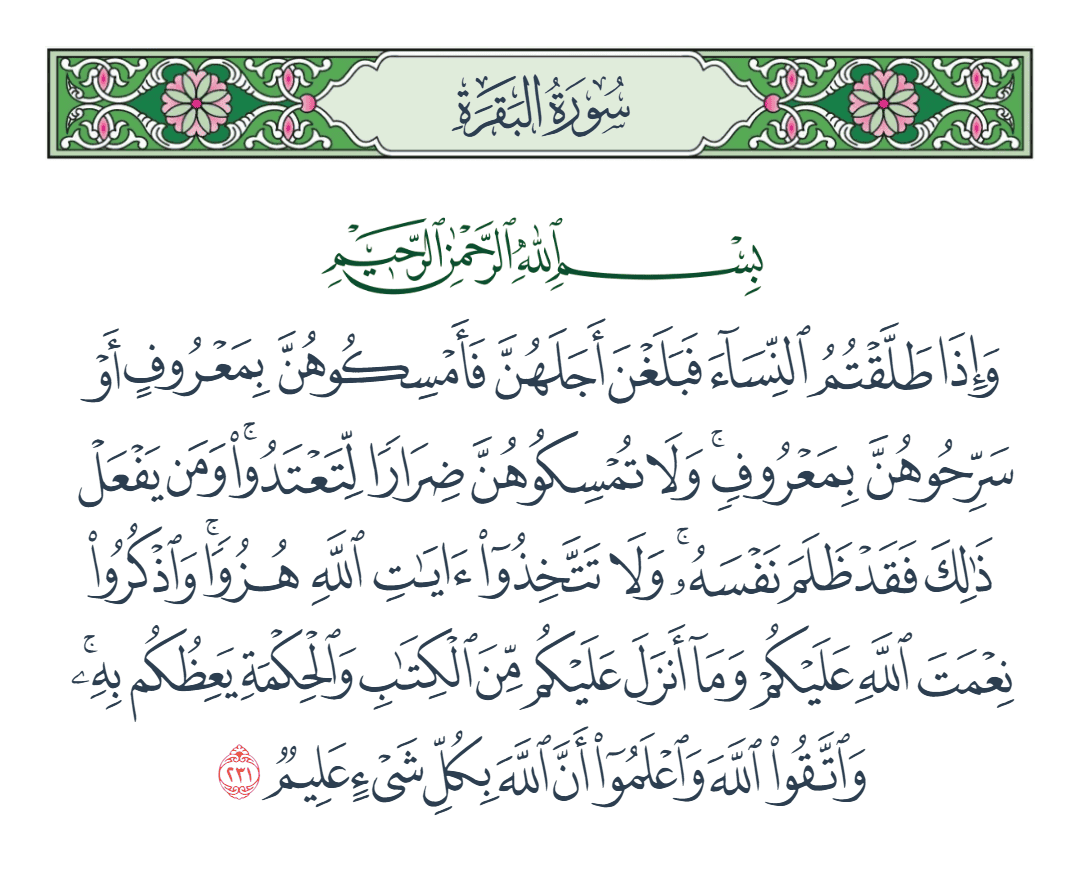 سُورَةُ البَقَرَةِ
بِسْمِ ٱللَّهِ ٱلرَّحْمَٰنِ ٱلرَّحِيمِ
وَإِذَا طَلَّقْتُمُ ٱلنِّسَآءَ فَبَلَغْنَ أَجَلَهُنَّ فَأَمْسِكُوهُنَّ بِمَعْرُوفٍ أَوْ
سَرِّحُوهُنَّ بِمَعْرُوفٍۚ وَلَا تُمْسِكُوهُنَّ ضِرَارًا لِّتَعْتَدُوا۟ۚ وَمَن يَفْعَلْ
ذَٰلِكَ فَقَدْ ظَلَمَ نَفْسَهُۥۚ وَلَا تَتَّخِذُوٓا۟ ءَايَـٰتِ ٱللَّهِ هُزُوًاۚ وَٱذْكُرُوا۟
نِعْمَتَ ٱللَّهِ عَلَيْكُمْ وَمَآ أَنزَلَ عَلَيْكُم مِّنَ ٱلْكِتَـٰبِ وَٱلْحِكْمَةِ يَعِظُكُم بِهِۦۚ
وَٱتَّقُوا۟ ٱللَّهَ وَٱعْلَمُوٓا۟ أَنَّ ٱللَّهَ بِكُلِّ شَىْءٍ عَلِيمٌ ٢٣١